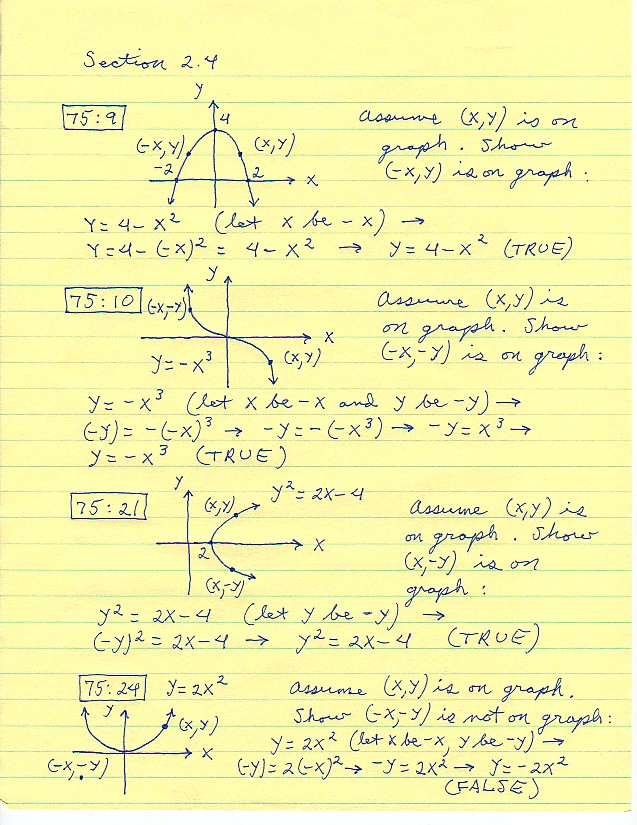 Section 2.4
75:9
y
4
(-x,y)
(x,y)
-2
2
x
Assume (x,y) is on
graph. Show
(-x,y) is on graph:
y = 4 - x² (let x be -x) →
y = 4 - (-x)² = 4 - x² → y = 4 - x² (TRUE)
75:10
y
(-x,-y)
x
(x,y)
y = -x³
Assume (x,y) is
on graph. Show
(-x,-y) is on graph:
y = -x³ (let x be -x and y be -y) →
(-y) = -(-x)³ → -y = -(-x³) → -y = x³ →
y = -x³ (TRUE)
75:21
y
(x,y)
y² = 2x - 4
2
x
(x,-y)
Assume (x,y) is
on graph. Show
(x,-y) is on
graph:
y² = 2x - 4 (let y be -y) →
(-y)² = 2x - 4 → y² = 2x - 4 (TRUE)
75:24 y = 2x²
y
(x,y)
x
(-x,-y)
Assume (x,y) is on graph.
Show (-x,-y) is not on graph:
y = 2x² (let x be -x, y be -y) →
(-y) = 2(-x)² → -y = 2x² → y = -2x²
(FALSE)